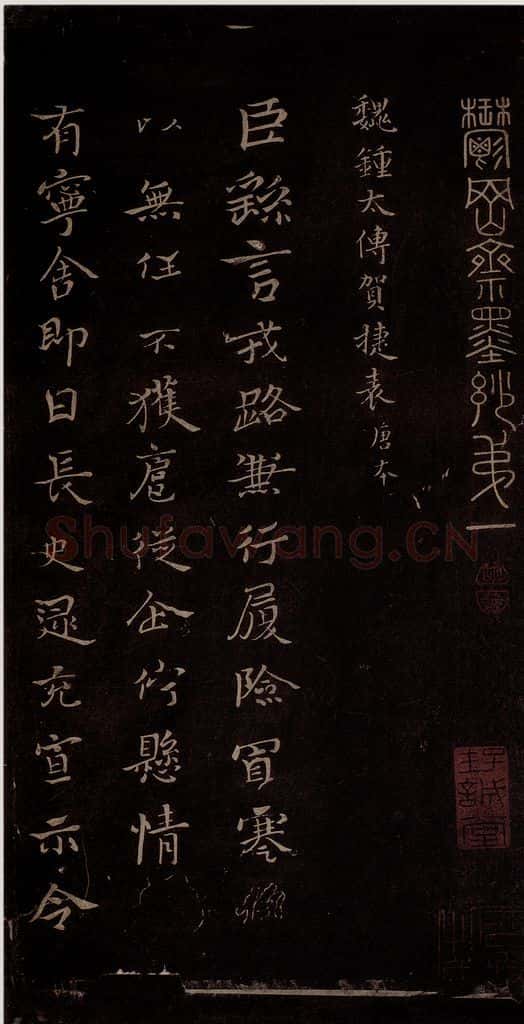 鬱岡齋墨妙第一
魏鍾太傅賀捷表 唐本
臣繇言戎路兼行履險冒寒
以無任不獲扈從企佇懸情
有寧舍即日長史逯充宣示令
Shufawang.CN